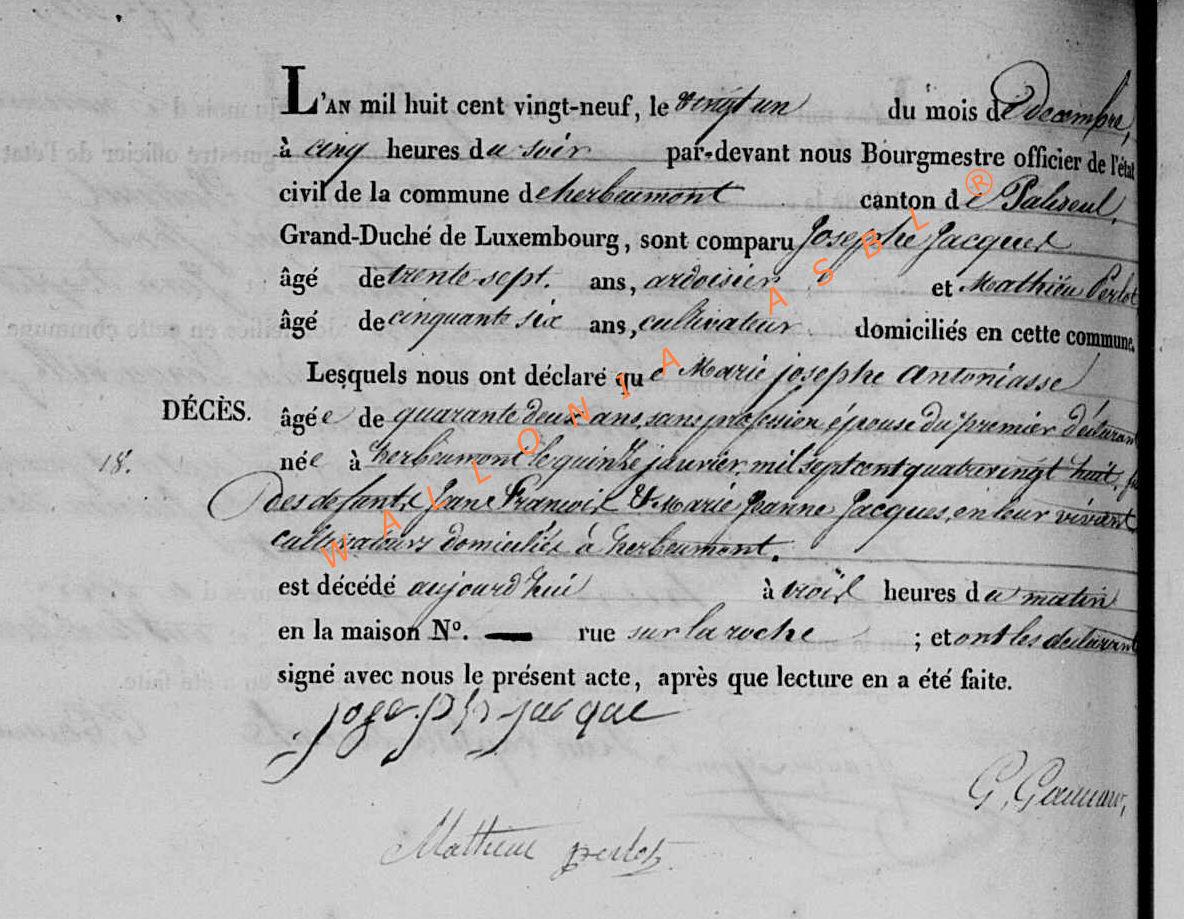 L'AN mil huit cent vingt-neuf, le vingt un du mois de decembre,
à cinq heures du soir par-devant nous Bourgmestre officier de l'état
civil de la commune de herbeumont canton de Paliseul,
Grand-Duché de Luxembourg, sont comparu Josephe Jacques
âgé de trente sept. ans, ardoisier et Mathieu Perlot
âgé de cinquante six ans, cultivateur domiciliés en cette commune,
Lesquels nous ont déclaré que Marie josephe Antoniasse
DÉCÈS. âgée de quarante deux ans, sans profession épouse du premier déclarant
18. née à herbeumont le quinze janvier mil sept cent quatre vingt huit,
des defants Jean Francois & Marie Jeanne Jacques, en leur vivant
cultivateurs domiciliés à herbeumont.
est décédé aujourd'hui à trois heures du matin
en la maison N°. — rue sur la roche ; et ont les declarant
signé avec nous le présent acte, après que lecture en a été faite.
joseph jacque
Mathieu perlot
WALLONIA ASBL ®